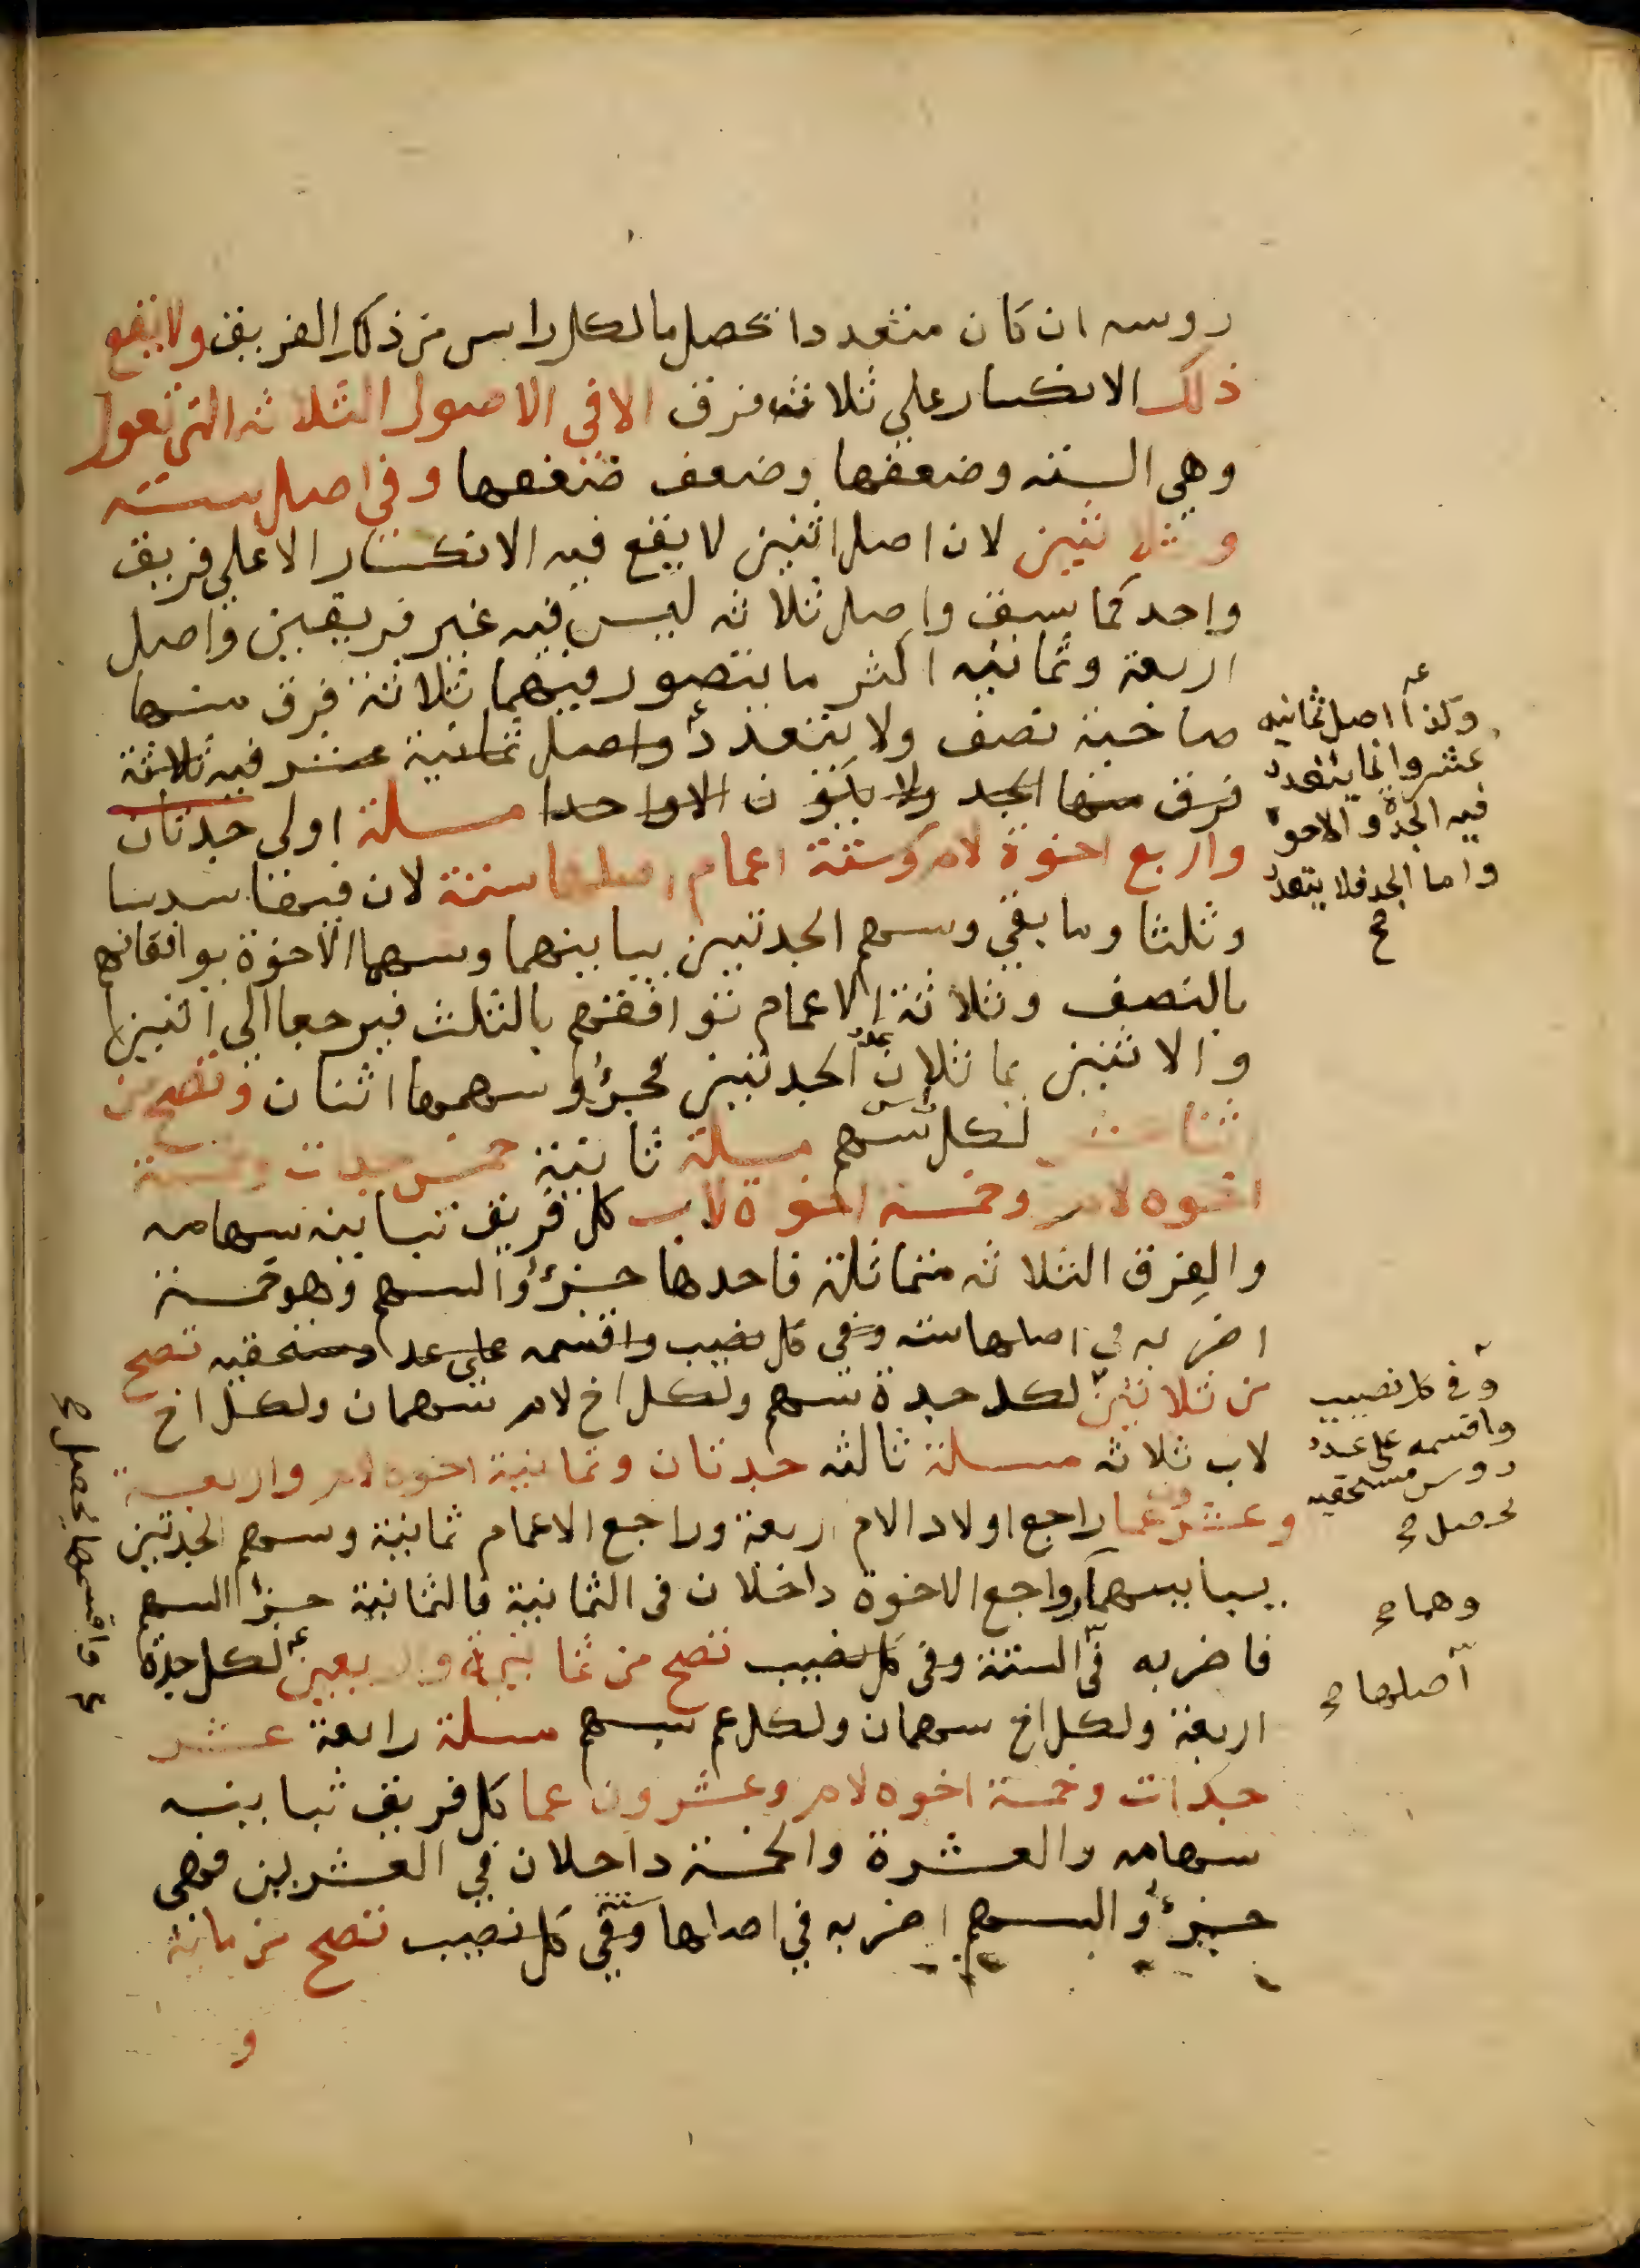 روسه ان كان متعددا تحصل مالكل راس من ذلك الفريق ولا يقع
ذلك الانكسار على ثلاثه فرق الا في الاصول الثلاثه التي تعول
وهي السته وضعفها وضعف ضعفها وفي اصل سته
وثلاثين لان اصل اثنين لا يقع فيه الانكسار الا على فريق
واحد كما سبق واصل ثلاثه ليس فيه غير فريقين واصل
اربعة وثمانيه اكثر ما يتصور فيهما ثلاثة فرق منها
صاحبة نصف ولا يتعدد واصل ثمانية عشر فيه ثلاثة
فرق منها الجد ولا يكون الا واحدا مسلة اولى جدتان
واربع اخوة لام وستة اعمام اصلها ستة لان فيها سدسا
وثلثا وما بقي وسهم الجدتين يباينهما وسهما الاخوة يوافقانهم
بالنصف وثلاثة الاعمام توافقهم بالثلث فيرجعا الى اثنين
والاثنين يماثلان عدد الجدتين فجزؤ سهمها اثنان وتصح من
اثنا عشر لكل راس سهم مسلة ثانية خمس جدات وخمسة
اخوه لام وخمسة اخوة لاب كل فريق تباينه سهامه
والفرق الثلاثه متماثلة فاحدها جزؤ السهم وهو خمسة
اضربه في اصلها سته وفي كل نصيب واقسمه على عدد مستحقيه تصح
من ثلاثين لكل جدة سهم ولكل اخ لام سهمان ولكل اخ
لاب ثلاثه مسلة ثالثه جدتان وثمانية اخوه لام واربعة
وعشرون عما راجع اولاد الام اربعة وراجع الاعمام ثمانية وسهم الجدتين
يباينهما وراجع الاخوة داخلان في الثمانية فالثمانية جزؤ السهم
فاضربه في الستة وفي كل نصيب تصح من ثمانية واربعين لكل جدة
اربعة ولكل اخ سهمان ولكل عم سهم مسلة رابعة عشر
جدات وخمسة اخوه لام وعشرون عما كل فريق تباينه
سهامه والعشرة والخمسة داخلان في العشرين فهي
جزؤ السهم اضربه في اصلها ستة وفي كل نصيب تصح من مائة
و
وكذا اصل ثمانيه
عشر وانما يتعدد
فيه الجدة والاخوة
واما الجد فلا يتعدد
صح
وفي كل نصيب
واقسمه على عدد
روس مستحقيه
يحصل صح
وهما صح
اصلها صح
واقسمها يحصل صح